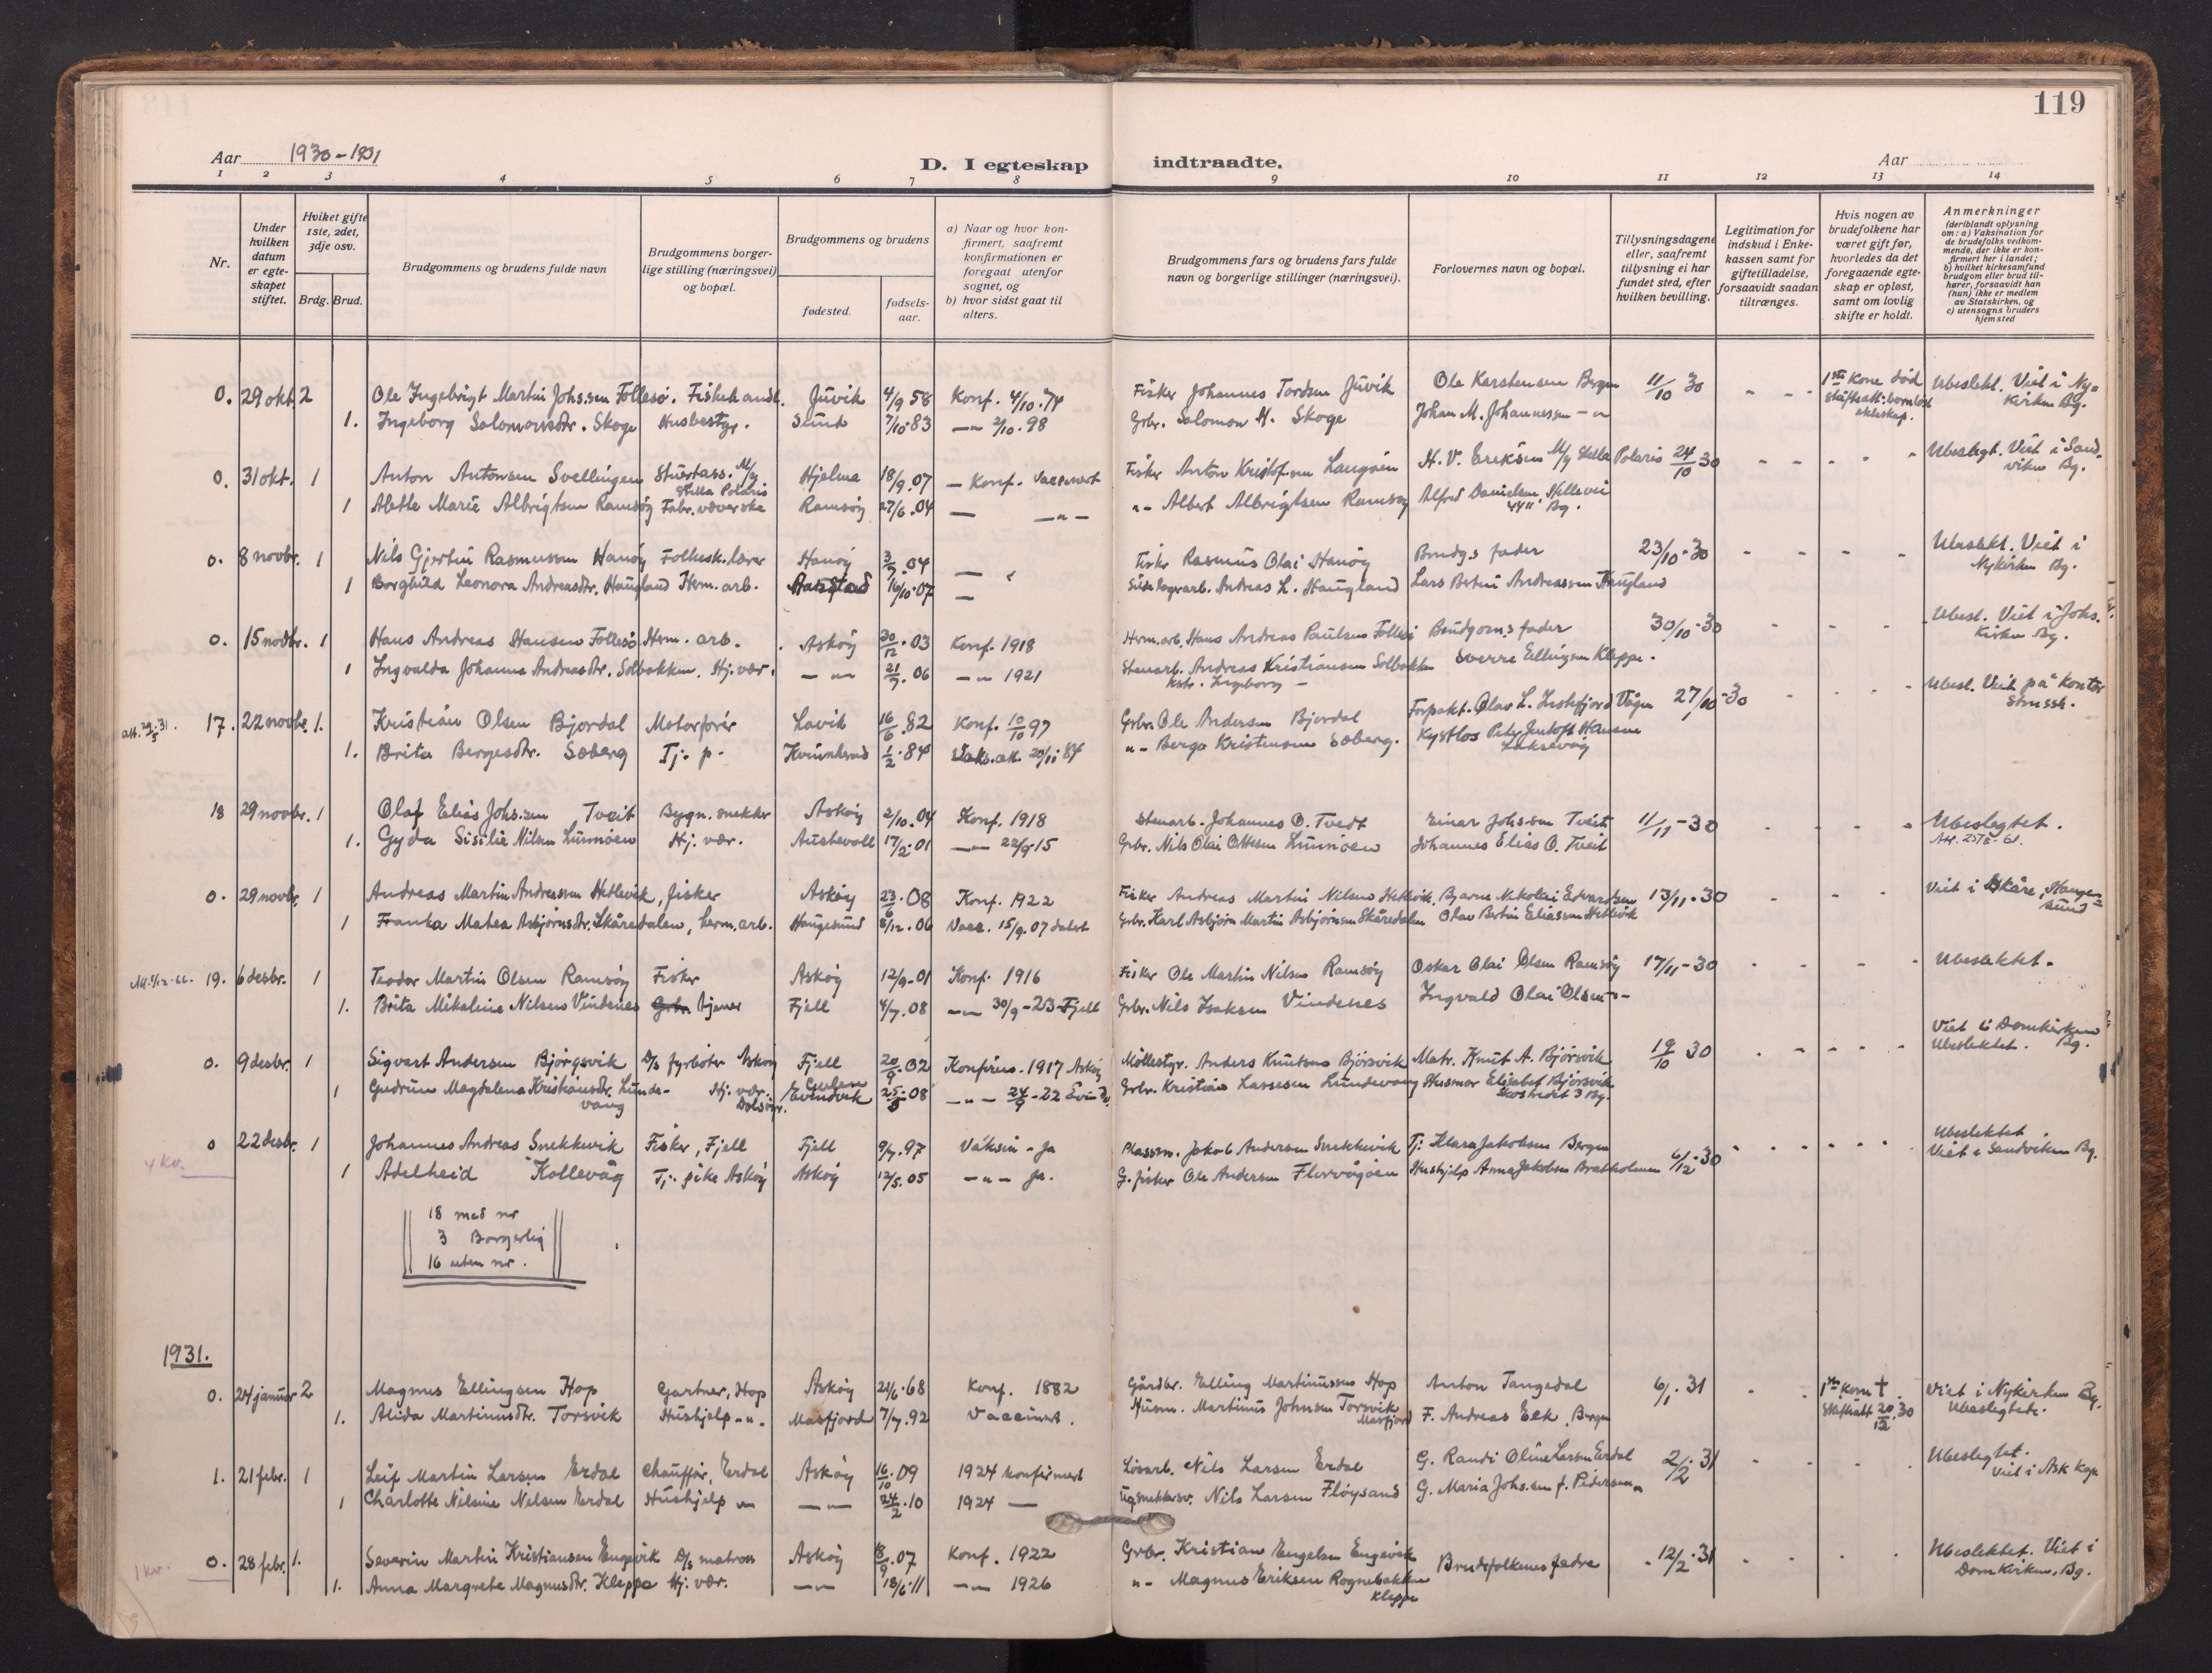 119
Aar 1930-1931
D. I egteskap indtraadte.
Aar
1 2 3 4 5 6 7 8 9 10 11 12 13 14
Nr.
Under hvilken datum er egte-skapet stiftet.
Hviket gifte 1ste, 2det, 3dje osv.
Brdg. Brud.
Brudgommens og brudens fulde navn
Brudgommens borger-lige stilling (næringsvei) og bopæl.
Brudgommens og brudens
fødested.
fødsels-aar.
a) Naar og hvor kon-firmert, saafremt konfirmationen er foregaat utenfor sognet, og
b) hvor sidst gaat til alters.
Brudgommens fars og brudens fars fulde navn og borgerlige stillinger (næringsvei).
Forlovernes navn og bopæl.
Tillysningsdagene eller, saafremt tillysning ei har fundet sted, efter hvilken bevilling.
Legitimation for indskud i Enke-kassen samt for giftetilladelse, forsaavidt saadan tiltrænges.
Hvis nogen av brudefolkene har været gift før, hvorledes da det foregaaende egte-skap er opløst, samt om lovlig skifte er holdt.
Anmerkninger
(deriblandt oplysning om: a) Vaksination for de brudefolks vedkom-mende, der ikke er kon-firmert her i landet; b) hvilket kirkesamfund brudgom eller brud til-hører, forsaavidt han (hun) ikke er medlem av Statskirken, og c) utensogns bruders hjemsted
0. 29 okt. 2 Ole Ingebrigt Martin Johs.sen Follesø. Fiskehandl. Juvik 4/9 58 Konf. 4/10.74 Fisker Johannes Tordsen Juvik Ole Karstensen Bergen 11/10 30 - - 1ste kone død Ubeslekt. Viet i Ny=
skifteatt: barnløst ekteskap. kirken Bg.
1. Ingeborg Salomonsdtr. Skoge Husbestyr. Sund 7/10.83 -"- 2/10.98 Grbr. Salomon H. Skoge Johan M. Johannessen -"-
0. 31 okt. 1 Anton Antonsen Svellingen Stuertass. M/y Stella Polaris Hjelma 18/9.07 - Konf. Vaccinert Fisker Anton Kristofersen Langøien H. V. Eriksen M/y Stella Polaris 24/10 30 - - - - Ubeslegt. Viet i Sand-
viken Bg.
1 Alette Marie Albrigtsen Ramsøy Fabr. væverske Ramsøy 27/6.04 - -"- "- Albert Albrigtsen Ramsøy Alfred Danielsen, Hellevei 44" Bg.
0. 8 novbr. 1 Nils Gjertin Rasmussen Hanøy Folkesk.lærer Hanøy 3/7.04 - Fisker Rasmus Olai Hanøy Brudg.s fader 23/10-30 - - - - Ubeslekt. Viet i
Nykirken Bg.
1 Borghild Leonora Andreasdtr. Haugland Herm. arb. 16/10.07 - Andreas L. Haugland Lars Bertin Andreassen Haugland
0. 15 novbr. 1 Hans Andreas Hansen Follesø Herm. arb. Askøy 30/12.03 Konf. 1918 Herm.arb. Hans Andreas Paulsen Follesø Brudgom.s fader 30/10-30 - - - Ubesl. Viet i Johs.
kirken Bg.
1 Ingvalda Johanna Andreasdtr. Solbakken. Hj. vær. -"- 21/7.06 -"- 1921 Stenarb. Andreas Kristiansen Solbakken Sverre Ellingsen Kleppe.
17. 22 novbr. 1. Kristian Olsen Bjordal Motorfører Lavik 16/6.82 Konf. 10/10 97 Grbr. Ole Andersen Bjordal Forpakt. Olav L. Vågen 27/10-30 - - - Ubesl. Viet på kontor
1. Brita Bergesdtr. Soberg Tj. p. 1/2.84 Vaks. att. 20/11 84 "- Berge Kristensen Soberg. Peter Hansen Laksevåg
18 29 novbr. 1 Olaf Elias Johs.sen Tveit Bygn. snekker Askøy 2/10.04 Konf. 1918 Stenarb. Johannes O. Tvedt Einar Johs.sen Tveit 11/11-30 - - - Ubeslegtet.
1. Gyda Sisilie Nilsen Lunnøen Hj. vær. Austevoll 17/2.01 -"- 22/9.15 Grbr. Nils Olai Ottesen Lunnøen Johannes Elias O. Tveit
0. 29 novbr. 1 Andreas Martin Andreassen Hetlevik, fisker Askøy 23/6.08 Konf. 1922 Fisker Andreas Martin Nilsen Hetlevik, Bjarne Nikolai Edvardsen 13/11-30 - - Viet i Skåre, Hauge=
sund
1 Franka Matea Asbjørnsdtr. Skåredalen, herm. arb. Haugesund 8/12.06 Vacc. 15/9.07 datert Grbr. Karl Asbjørn Martin Asbjørnsen Skåredalen Olav Bertin Eliassen Hetlevik
19. 6 desbr. 1 Teodor Martin Olsen Ramsøy Fisker Askøy 12/9-01 Konf. 1916 Fisker Ole Martin Nilsen Ramsøy Oskar Olai Olsen Ramsøy 17/11-30 - - - Ubeslektet.
1. Brita Mikaline Nilsen Vindenes tjener Fjell 4/7.08 -"- 30/9-23-Fjell Grbr. Nils Isaksen Vindenes Ingvald Olai Olsen -"-
0. 9 desbr. 1 Sigvart Andersen Bjørgsvik D/s fyrbøter Askøy Fjell 20/9.02 Konfirm. 1917 Askøy Møllestyr. Anders Knutsen Bjørsvik Matr. Knut A. Bjørsvik 19/10 30 - - - - Viet i Domkirken
Ubeslektet. Bg.
1 Gudrun Magdalena Kristiansdtr. Lunde-vang Hj. vær. Gulen Evindvik 25/8.08 -"- 24/9-22 Evindv. Grbr. Kristian Lassesen Lundevang Husmor Elisabet Bjørsvik
0 22 desbr. 1 Johannes Andreas Snekkevik Fisker, Fjell Fjell 9/7.97 Vaksin - ja Plassm. Jakob Andersen Snekkevik Tj. Klara Jakobsen Bergen 6/12-30 - - - - Ubeslektet
Viet i Sandviken Bg.
4 kv.
1 Adelheid Kollevåg Tj. pike Askøy Askøy 12/5.05 -"- ja. G. fisker Ole Andersen Florvågøen Hushjelp Anna Jakobsen Bratholmen
18 med nr
3 Borgerlig
16 uten nr.
1931.
0. 24 januar 2 Magnus Ellingsen Hop Gartner, Hop Askøy 21/6.68 Konf. 1882 Gårdbr. Elling Martinussen Hop Anton Tangedal 6/1.31 - - 1ste kone † Viet i Nykirken Bg.
Skifteatt 20/12.30 Ubeslegtede.
1. Alida Martinusdtr. Torsvik Hushjelp -"- Masfjord 7/7.92 Vaccinert. Husm. Martinus Johnsen Torsvik Masfjord F. Andreas Eek, Bergen
1. 21 febr. 1 Leif Martin Larsen Erdal Chauffør, Erdal Askøy 16/10.09 1924 konfirmert Løsarb. Nils Larsen Erdal G. Randi Oline Larsen Erdal 2/2.31 - - - Ubeslegtet.
Viet i Ask kap
1 Charlotte Nilsine Nilsen Erdal Hushjelp -"- -"- 24/2.10 1924 - Nils Larsen Fløysand G. Maria Johs.sen f. Pedersen "
0. 28 febr. 1. Severin Martin Kristiansen Engevik D/s matros Askøy 8/9.07 Konf. 1922 Grbr. Kristian Engelsen Engevik Brudefolkenes fedre 12/2.31 - - - Ubeslektet. Viet i
Domkirken, Bg.
1 kv.
1. Anna Margrete Magnusdtr. Kleppe Hj. vær. -"- 18/6.11 -"- 1926 "- Magnus Eriksen Rognebakken
Kleppe